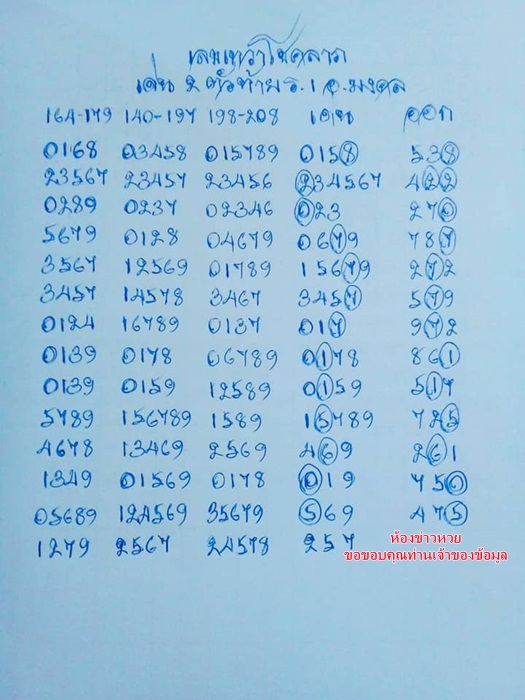 เลขเทวาโชคลาภ
เด่น 2 ตัวท้าย ร.1 อ.มงคล
164-179 140-197 198-208 เด่น ออก
0168 03458 015789 0158 538
23567 23457 23456 234567 422
0289 0237 02346 023 270
5679 0128 04679 0679 787
3567 12569 01789 15679 272
3457 14578 3467 3457 579
0124 16789 0137 017 972
0139 0178 06789 0178 861
0139 0159 12589 0159 517
5789 156789 1589 15789 725
4678 13469 2569 469 261
1349 01569 0178 019 750
05689 124569 35679 569 475
1279 2567 24578 257
ห้องข่าวหวย
ขอขอบคุณท่านเจ้าของข้อมูล